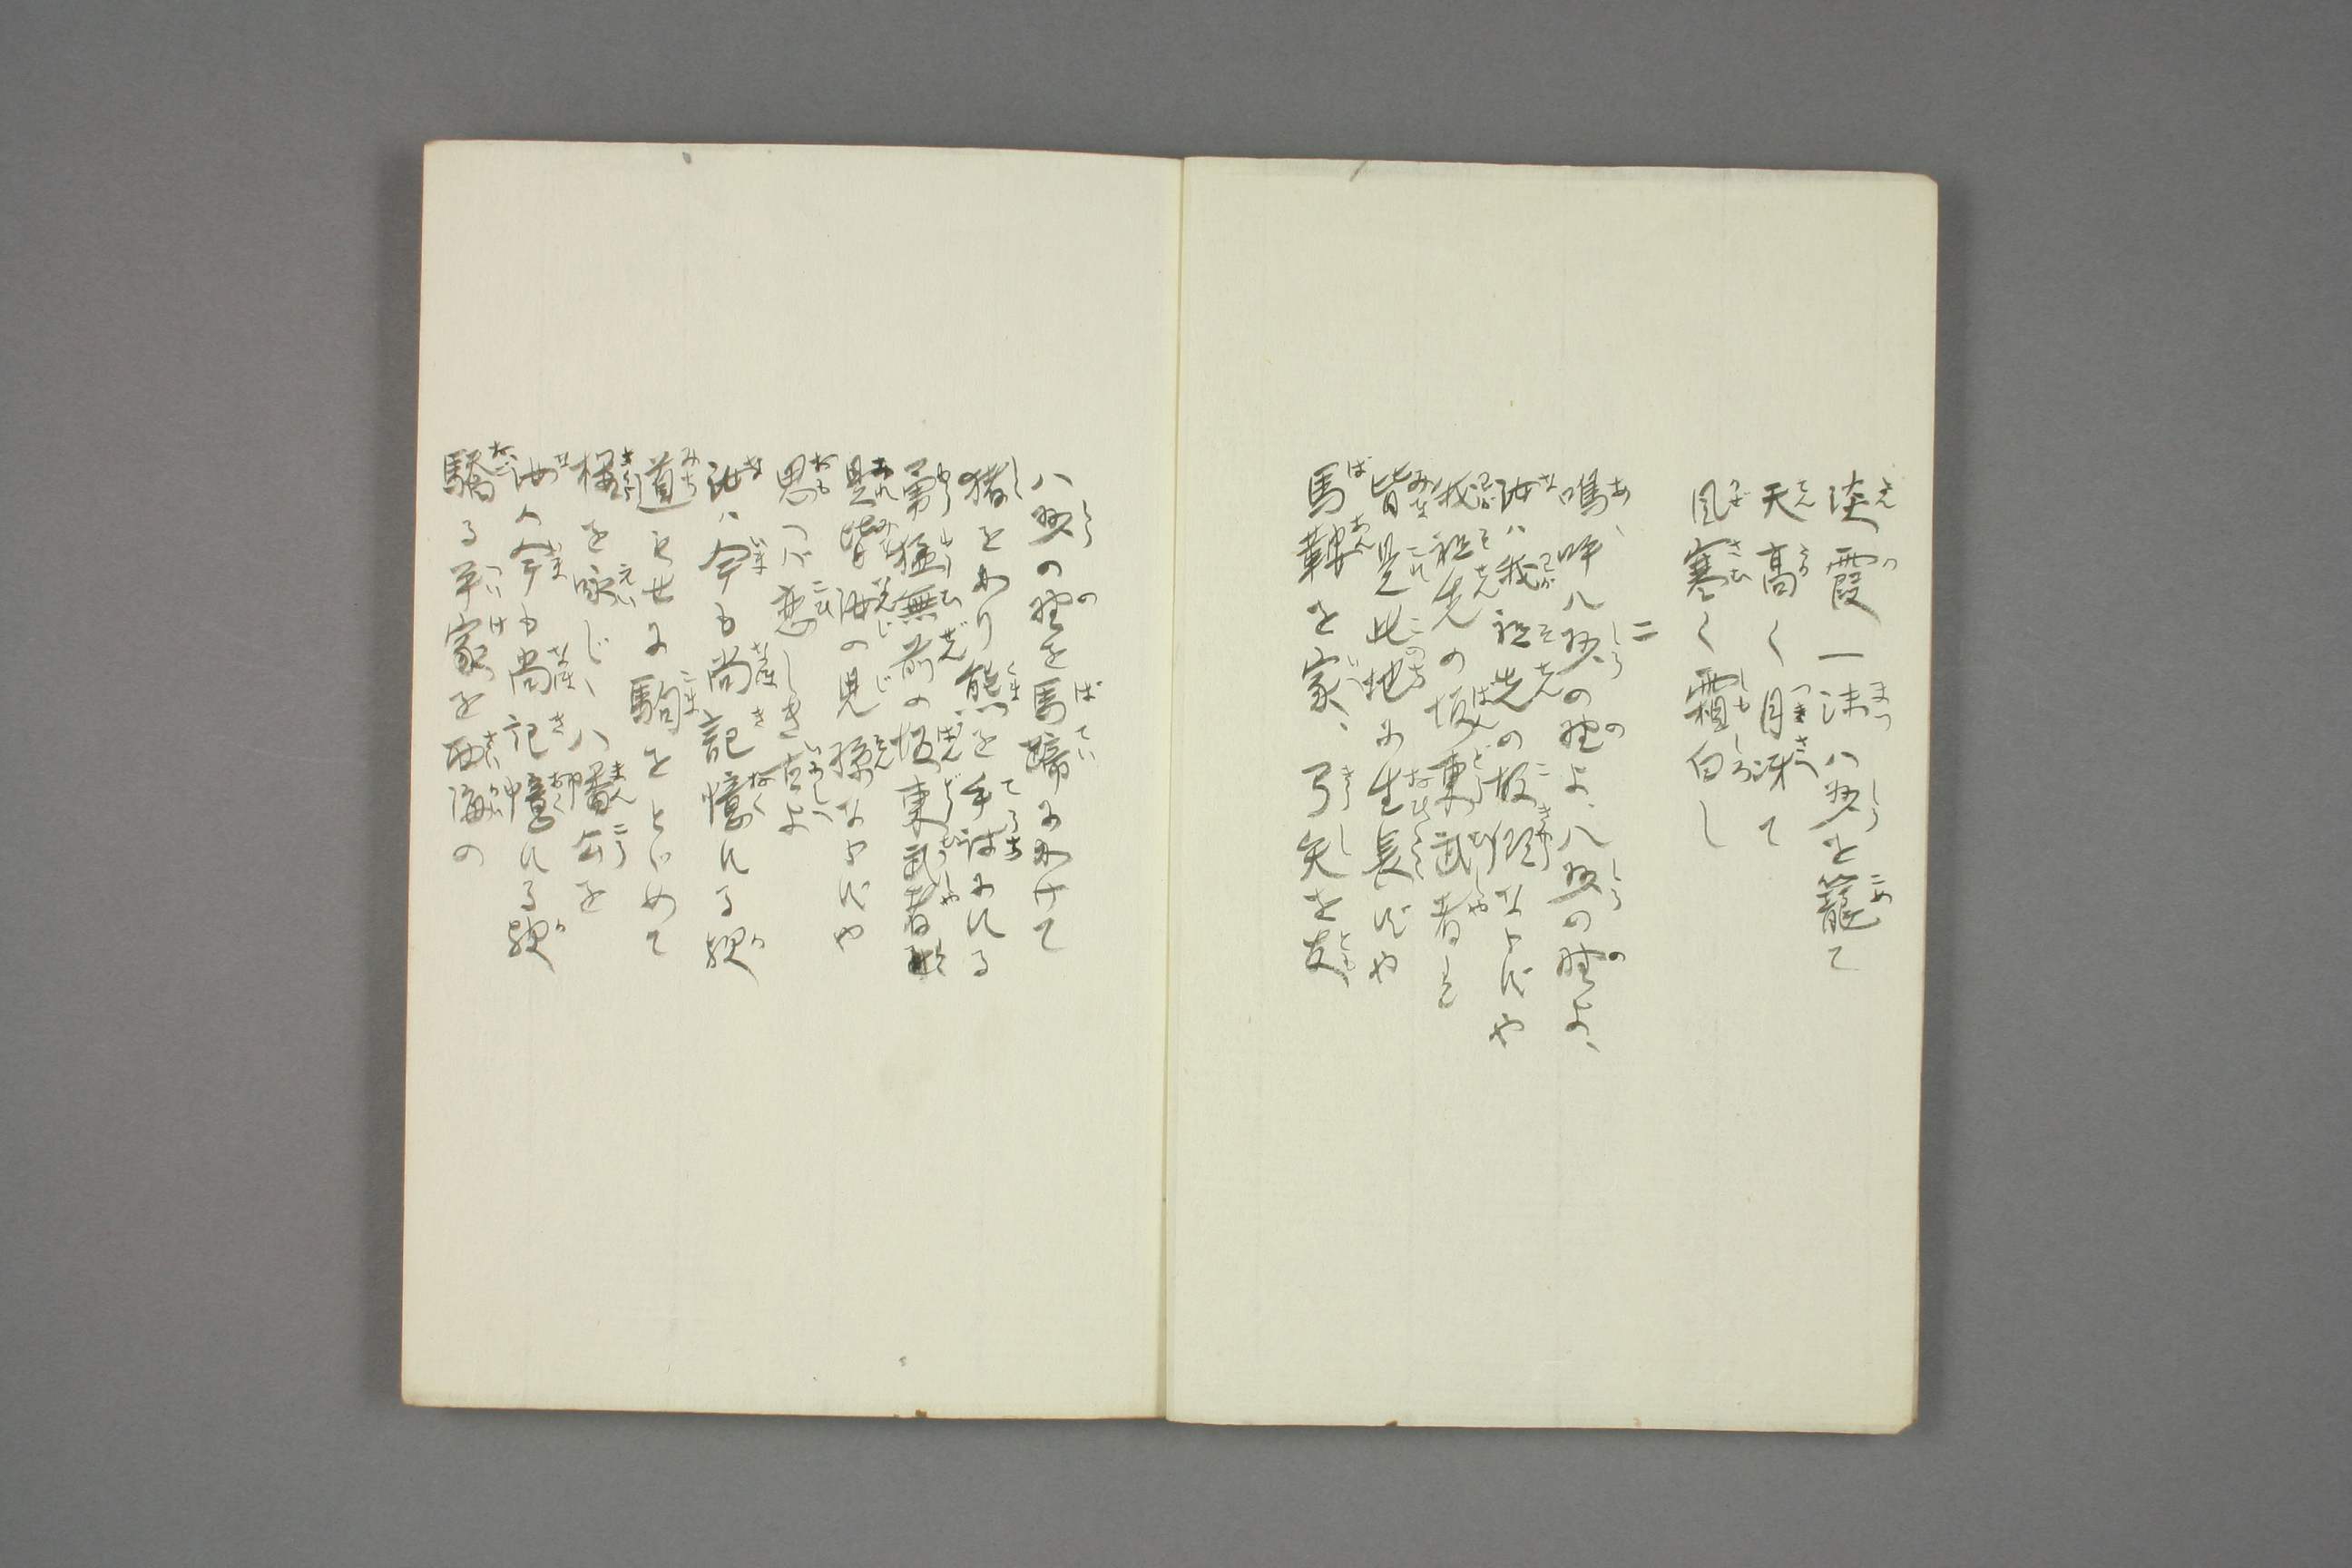 淡霞一沫八州を籠て
天高く月冴て
風寒く霜白し
二
嗚、呼八州の野よ、八州の野よ、
汝ハ我祖先の故郷ならずや
我祖先の坂東武者と
皆是此地に生長ずや
馬鞍を家、弓矢を友、
八州の野を馬蹄にかけて
猪をかり熊を手捕にれる
勇猛無前の坂東武者
是皆汝の児孫ならずや
思へバ恋しき古よ
汝ハ今も尚記憶れる歟
道もせに駒をとゞめて
桜を咏じ、八幡公を
汝ハ今も尚記憶れる歟
驕る平家を西海の